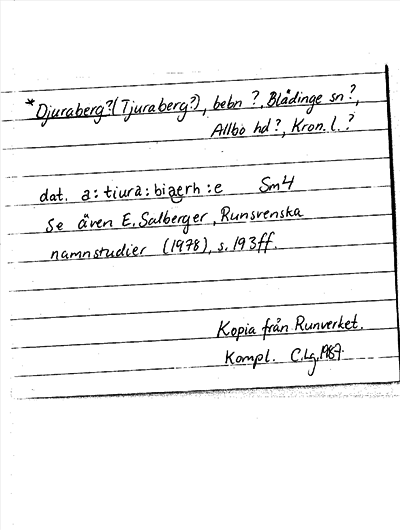 *Djuraberg? (Tjuraberg?), bebn ?, Blädinge sn?,
Allbo hd?, Kron. l.?
dat. a : tiura : biaerh : e Sm 4
Se även E. Salberger, Runsvenska
namnstudier (1978), s. 193ff.
Kopia från Runverket.
Kompl. C.Lg. 1987.